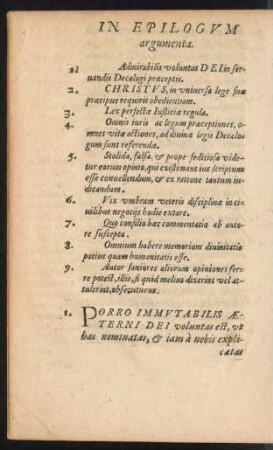 IN EPILOGVM
argumenta.
1. Admirabilis voluntas DEI in ser
uandis Decalogi præceptis.
2. CHRISTVS, in vniuersa lege suæ
præcipuè requirit obedientiam.
3. Lex perfectæ Iustitiæ regula.
4. Omnis iuris ac legum præceptiones, o-
mnes vitæ actiones, ad diuinæ legis Decalo-
gum sunt referendæ.
5. Stolida, falsa, & propè seditiosa vide-
tur eorum opinio, qui existimant ius scriptum
esse conuellendum, & ex ratione tantum iu-
dicandum.
6. Vix vmbram veteris disciplinæ in ci-
uilibus negocijs hodie extare.
7. Quo consilio hæc commentatio ab auto-
re suscepta.
8. Omnium habere memoriam diuinitatis
potius quam humanitatis esse.
9. Autor saniores aliorum opiniones fer-
re potest, illis, si quid melius dixerint vel at-
tulerint, obsecuturus.
1. PORRO IMMVTABILIS Æ-
TERNI DEI voluntas est, vt
has nominatas, & iam à nobis expli-
catas